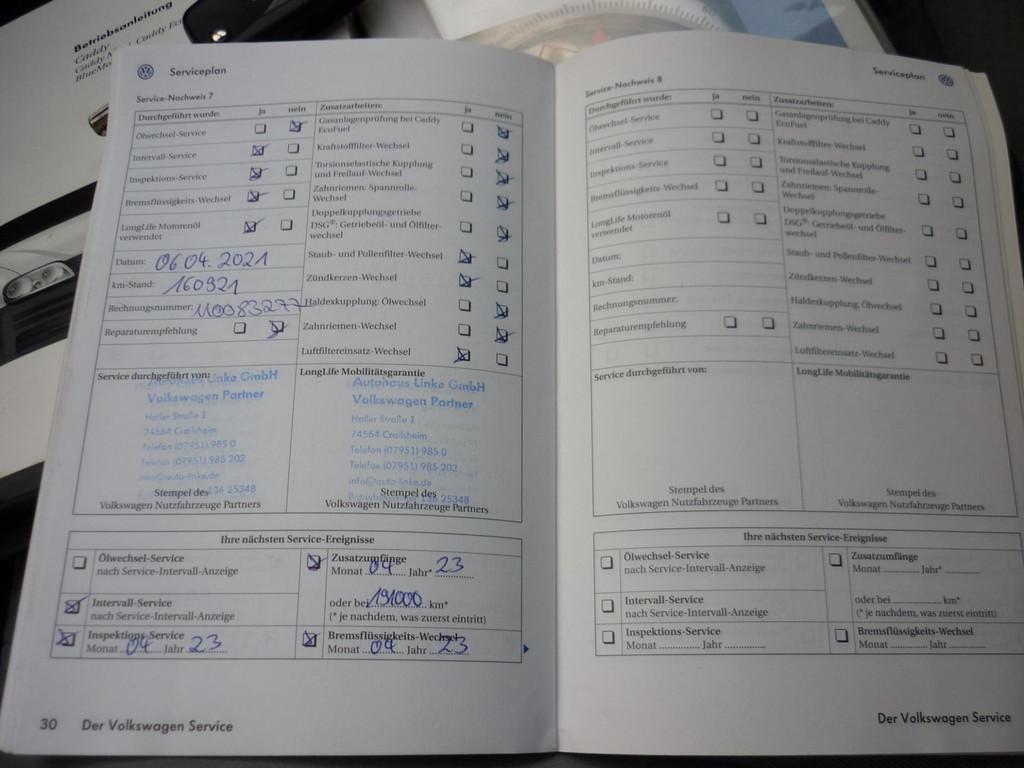 Betriebsanleitung
Caddy
Serviceplan
Service-Nachweis 7
Durchgeführt wurde: ja nein Zusatzarbeiten: ja nein
Ölwechsel-Service
Gasanlagenprüfung bei Caddy
EcoFuel
Intervall-Service
Kraftstofffilter-Wechsel
Inspektions-Service
Torsionselastische Kupplung
und Freilauf-Wechsel
Bremsflüssigkeits-Wechsel
Zahnriemen: Spannrolle-
Wechsel
LongLife Motorenöl
verwendet
Doppelkupplungsgetriebe
DSG®: Getriebeöl- und Ölfilter-
wechsel
Datum: 06.04.2021
Staub- und Pollenfilter-Wechsel
km-Stand: 160921
Zündkerzen-Wechsel
Rechnungsnummer:
Haldexkupplung: Ölwechsel
Reparaturempfehlung
Zahnriemen-Wechsel
Luftfiltereinsatz-Wechsel
Service durchgeführt von:
Autohaus Linke GmbH
Volkswagen Partner
Haller Straße 1
74564 Crailsheim
Telefon (07951) 985 0
Telefax (07951) 985 202
info@auto-linke.de
136 25348
Stempel des
Volkswagen Nutzfahrzeuge Partners
LongLife Mobilitätsgarantie
Autohaus Linke GmbH
Volkswagen Partner
Haller Straße 1
74564 Crailsheim
Telefon (07951) 985 0
Telefax (07951) 985 202
info@auto-linke.de
136 25348
Stempel des
Volkswagen Nutzfahrzeuge Partners
Ihre nächsten Service-Ereignisse
Ölwechsel-Service
nach Service-Intervall-Anzeige
Zusatzumfänge
Monat 04 Jahr* 23
Intervall-Service
nach Service-Intervall-Anzeige
oder bei 191000 km*
(* je nachdem, was zuerst eintritt)
Inspektions-Service
Monat 04 Jahr 23
Bremsflüssigkeits-Wechsel
Monat 04 Jahr 23
30 Der Volkswagen Service
Serviceplan
Service-Nachweis 8
Durchgeführt wurde: ja nein Zusatzarbeiten: ja nein
Ölwechsel-Service
Gasanlagenprüfung bei Caddy
EcoFuel
Intervall-Service
Kraftstofffilter-Wechsel
Inspektions-Service
Torsionselastische Kupplung
und Freilauf-Wechsel
Bremsflüssigkeits-Wechsel
Zahnriemen: Spannrolle-
Wechsel
LongLife Motorenöl
verwendet
Doppelkupplungsgetriebe
DSG®: Getriebeöl- und Ölfilter-
wechsel
Datum:
Staub- und Pollenfilter-Wechsel
km-Stand:
Zündkerzen-Wechsel
Rechnungsnummer:
Haldexkupplung: Ölwechsel
Reparaturempfehlung
Zahnriemen-Wechsel
Luftfiltereinsatz-Wechsel
Service durchgeführt von:
Stempel des
Volkswagen Nutzfahrzeuge Partners
LongLife Mobilitätsgarantie
Stempel des
Volkswagen Nutzfahrzeuge Partners
Ihre nächsten Service-Ereignisse
Ölwechsel-Service
nach Service-Intervall-Anzeige
Zusatzumfänge
Monat ............ Jahr* ............
Intervall-Service
nach Service-Intervall-Anzeige
oder bei .................. km*
(* je nachdem, was zuerst eintritt)
Inspektions-Service
Monat ............ Jahr ............
Bremsflüssigkeits-Wechsel
Monat ............ Jahr ............
Der Volkswagen Service